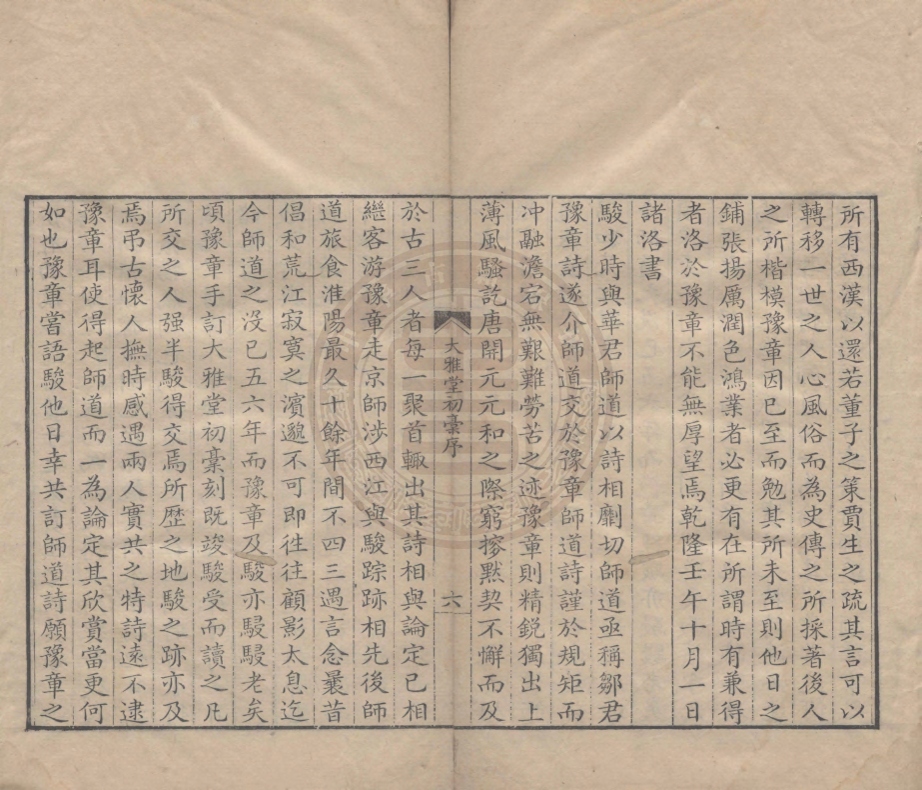 所有西漢以還若董子之策賈生之疏其言可以
轉移一世之人心風俗而為史傳之所採著後人
之所楷模豫章因已至而勉其所未至則他日之
鋪張揚厲潤色鴻業者必更有在所謂時有兼得
者洛於豫章不能無厚望焉乾隆壬午十月一日
諸洛書
駿少時與華君師道以詩相劘切師道亟稱鄒君
豫章詩遂介師道交於豫章師道詩謹於規矩而
冲融澹宕無艱難勞苦之迹豫章則精鋭獨出上
薄風騷訖唐開元元和之際窮摉默契不懈而及
大雅堂初稾序
六
於古三人者每一聚首輙出其詩相與論定已相
繼客游豫章走京師涉西江與駿踪跡相先後師
道旅食淮陽最久十餘年間不四三遇言念曩昔
倡和荒江寂寞之濱邈不可即徃往顧影太息迄
今師道之没已五六年而豫章及駿亦駸駸老矣
頃豫章手訂大雅堂初稾刻既竣駿受而讀之凡
所交之人强半駿得交焉所歴之地駿之跡亦及
焉弔古懷人撫時感遇兩人實共之特詩遠不逮
豫章耳使得起師道而一為論定其欣賞當更何
如也豫章嘗語駿他日幸共訂師道詩願豫章之